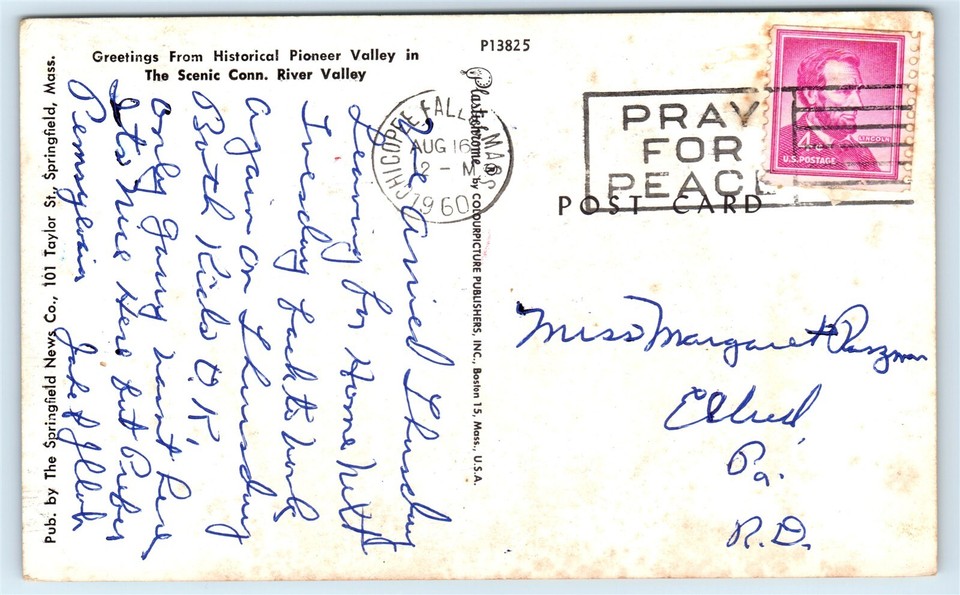 Greetings From Historical Pioneer Valley in
The Scenic Conn. River Valley
P13825
Pub. by The Springfield News Co., 101 Taylor St., Springfield, Mass.
Plastichrome ® by COLOURPICTURE PUBLISHERS, INC., Boston 15, Mass., U.S.A.
CHICOPEE FALLS MASS
AUG 16
2 - M
1960
PRAY
FOR
PEACE
4¢
LINCOLN
U.S. POSTAGE
POST CARD
We Arrived Thursday
Leaving for Home Next
Tuesday back to Work
Again on Thursday
Both Kids O.K.
Only Garry wasn't here
Its Nice Here but Prefer
Pennsylvain
Jake &
Miss Margaret
Eldred,
Pa.
R.D.